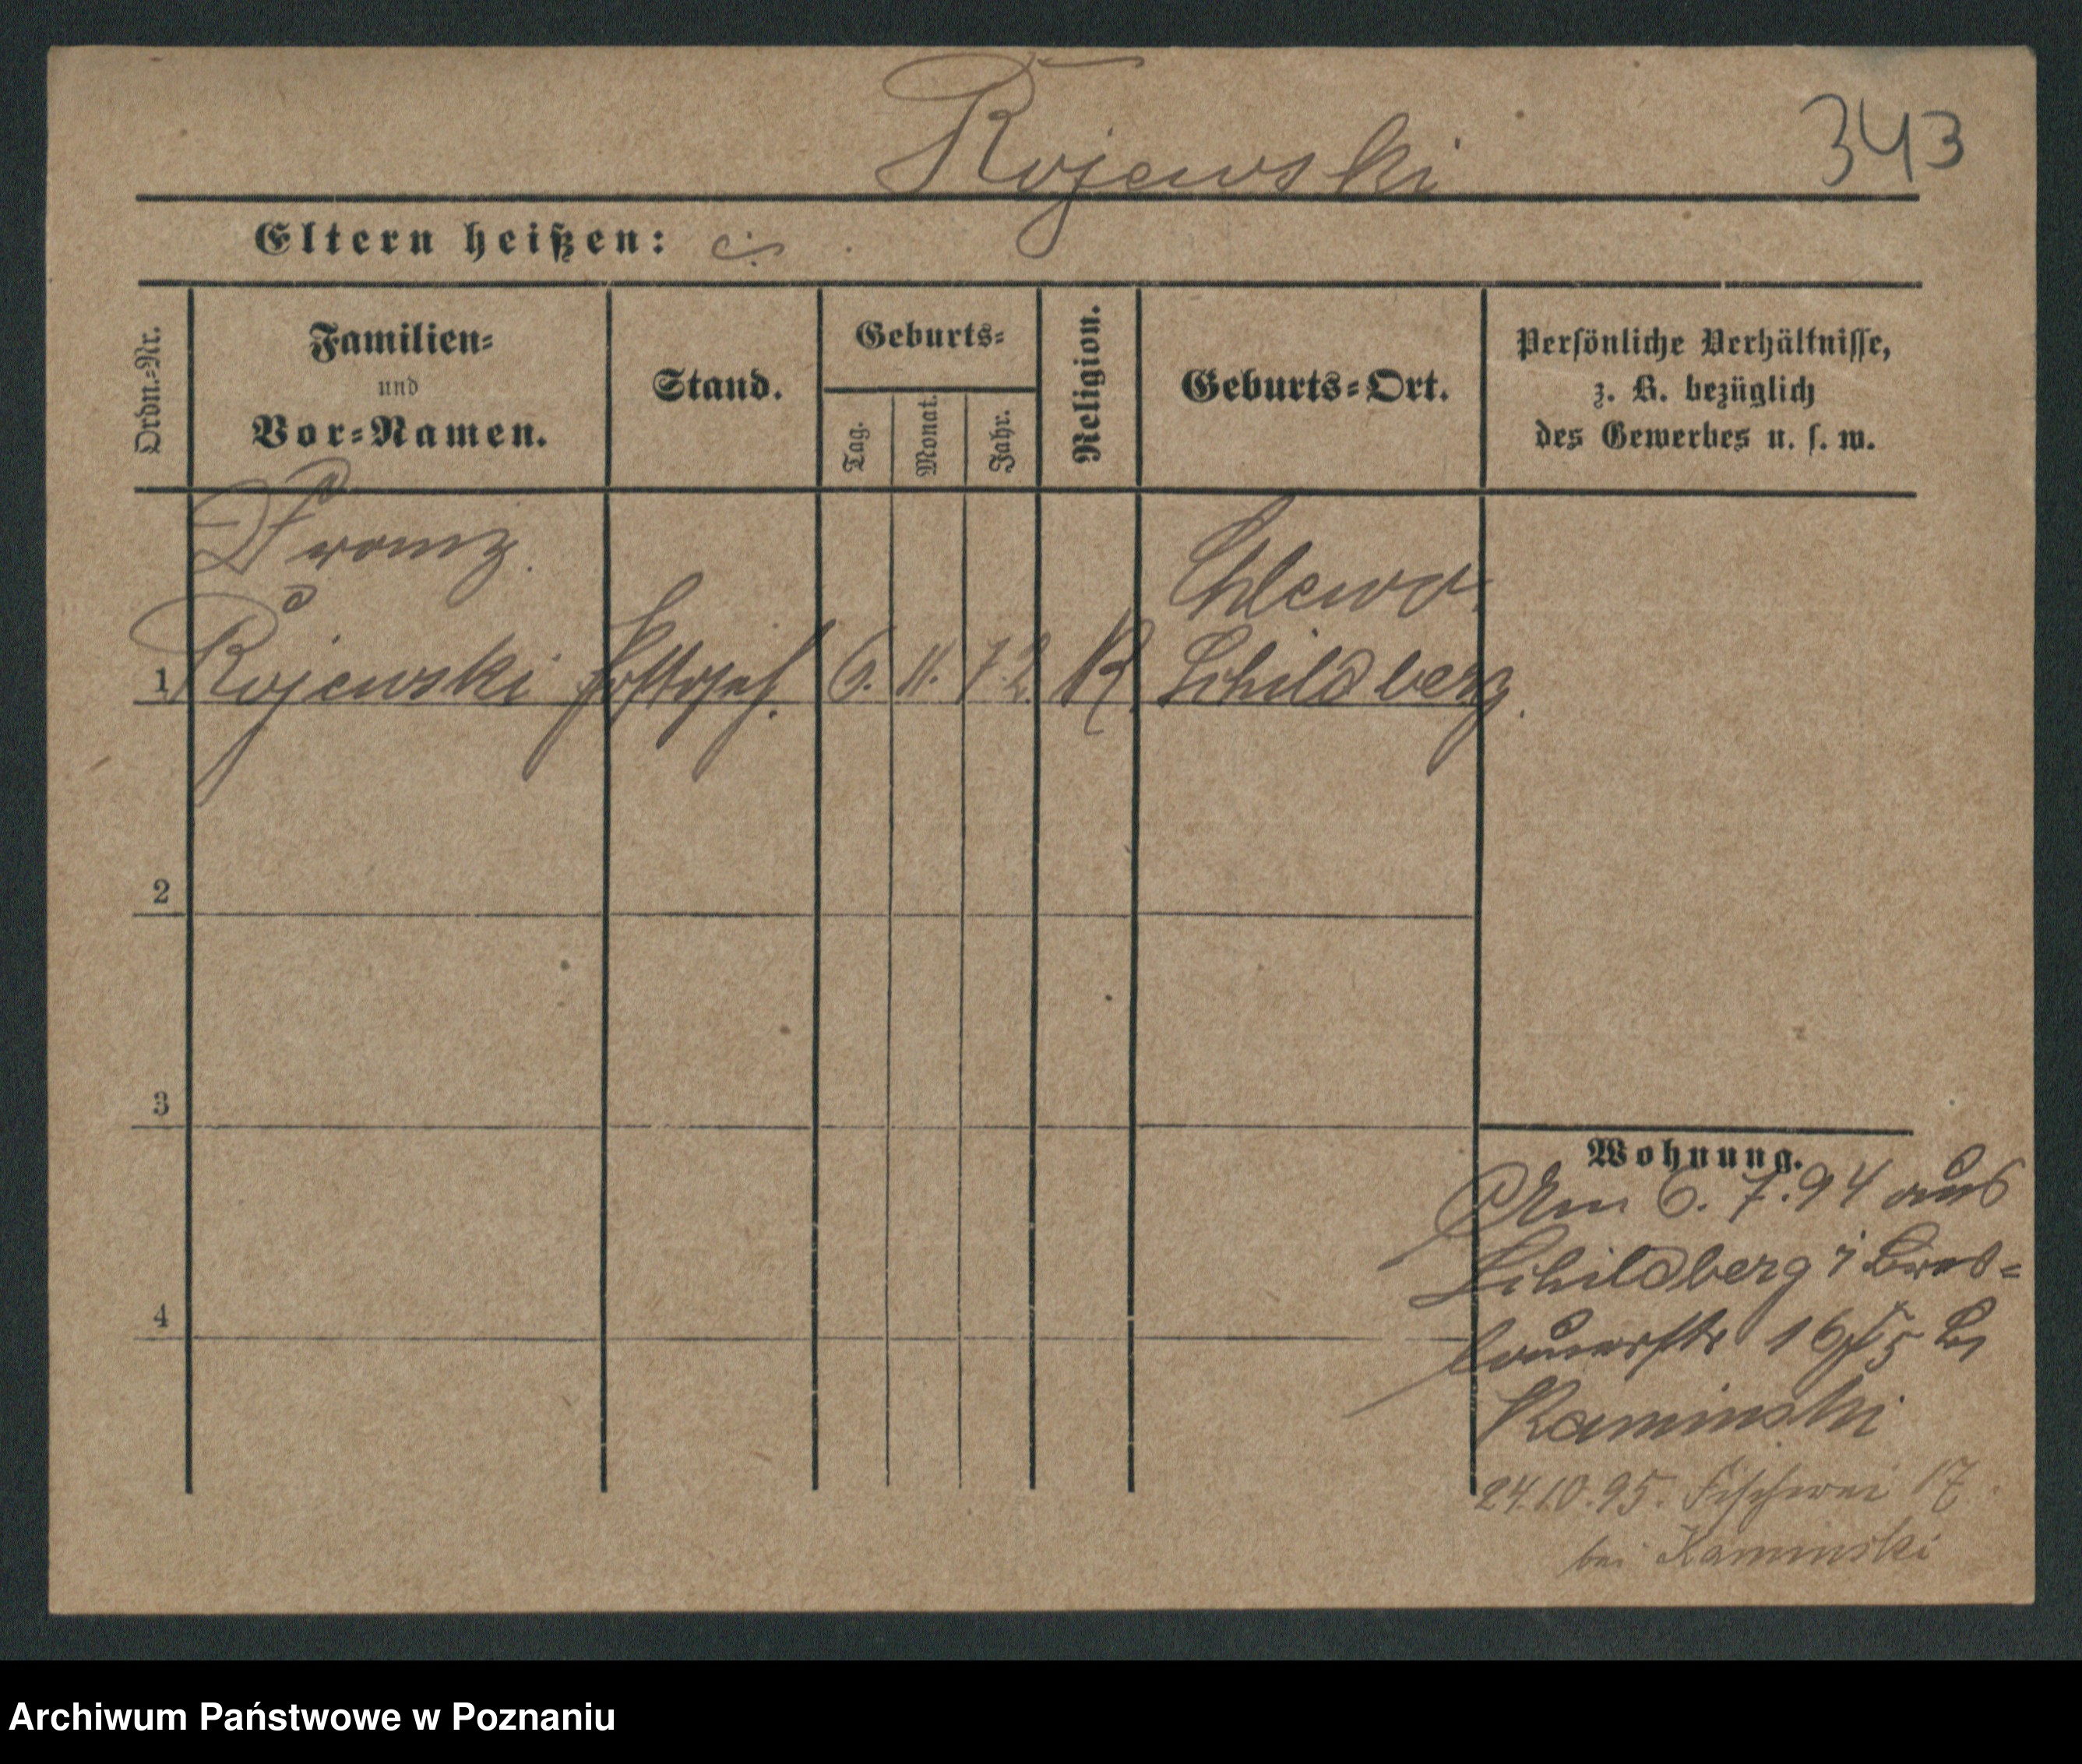 Rojewski
343
Eltern heißen:
Ordn.-Nr.
Familien-
und
Vor-Namen.
Stand.
Geburts-
Tag.
Monat.
Jahr.
Religion.
Geburts-Ort.
Persönliche Verhältnisse,
z. B. bezüglich
des Gewerbes u. s. w.
Franz.
Chlewo.
1 Rojewski 6. 11. 72. K. Schildberg.
2
3
4
Wohnung.
Am 6.7.94 aus
Schildberg Bres-
lauerstr 16/15 b/
Kaminski
24.10.95. Fischerei 17.
bei Kaminski
Archiwum Państwowe w Poznaniu